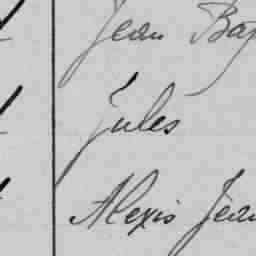 Jean Bap
Jules
Alexis Jean